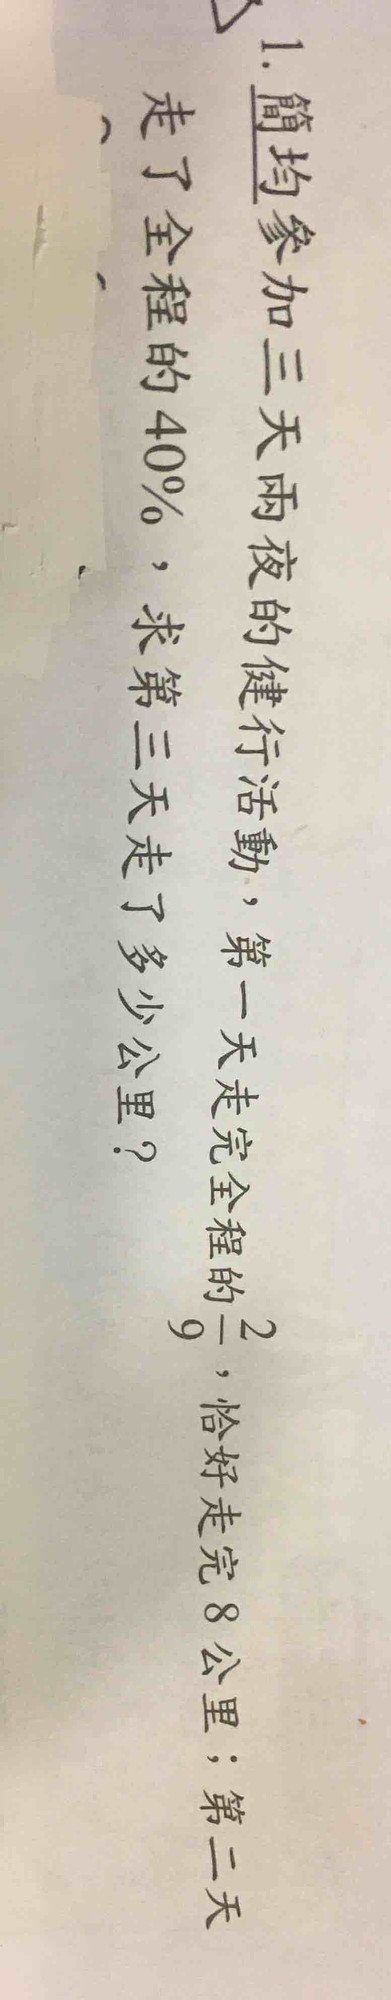 1. 簡均參加三天兩夜的健行活動，第一天走完全程的2/9，恰好走完8公里；第二天
走了全程的40%，求第三天走了多少公里？